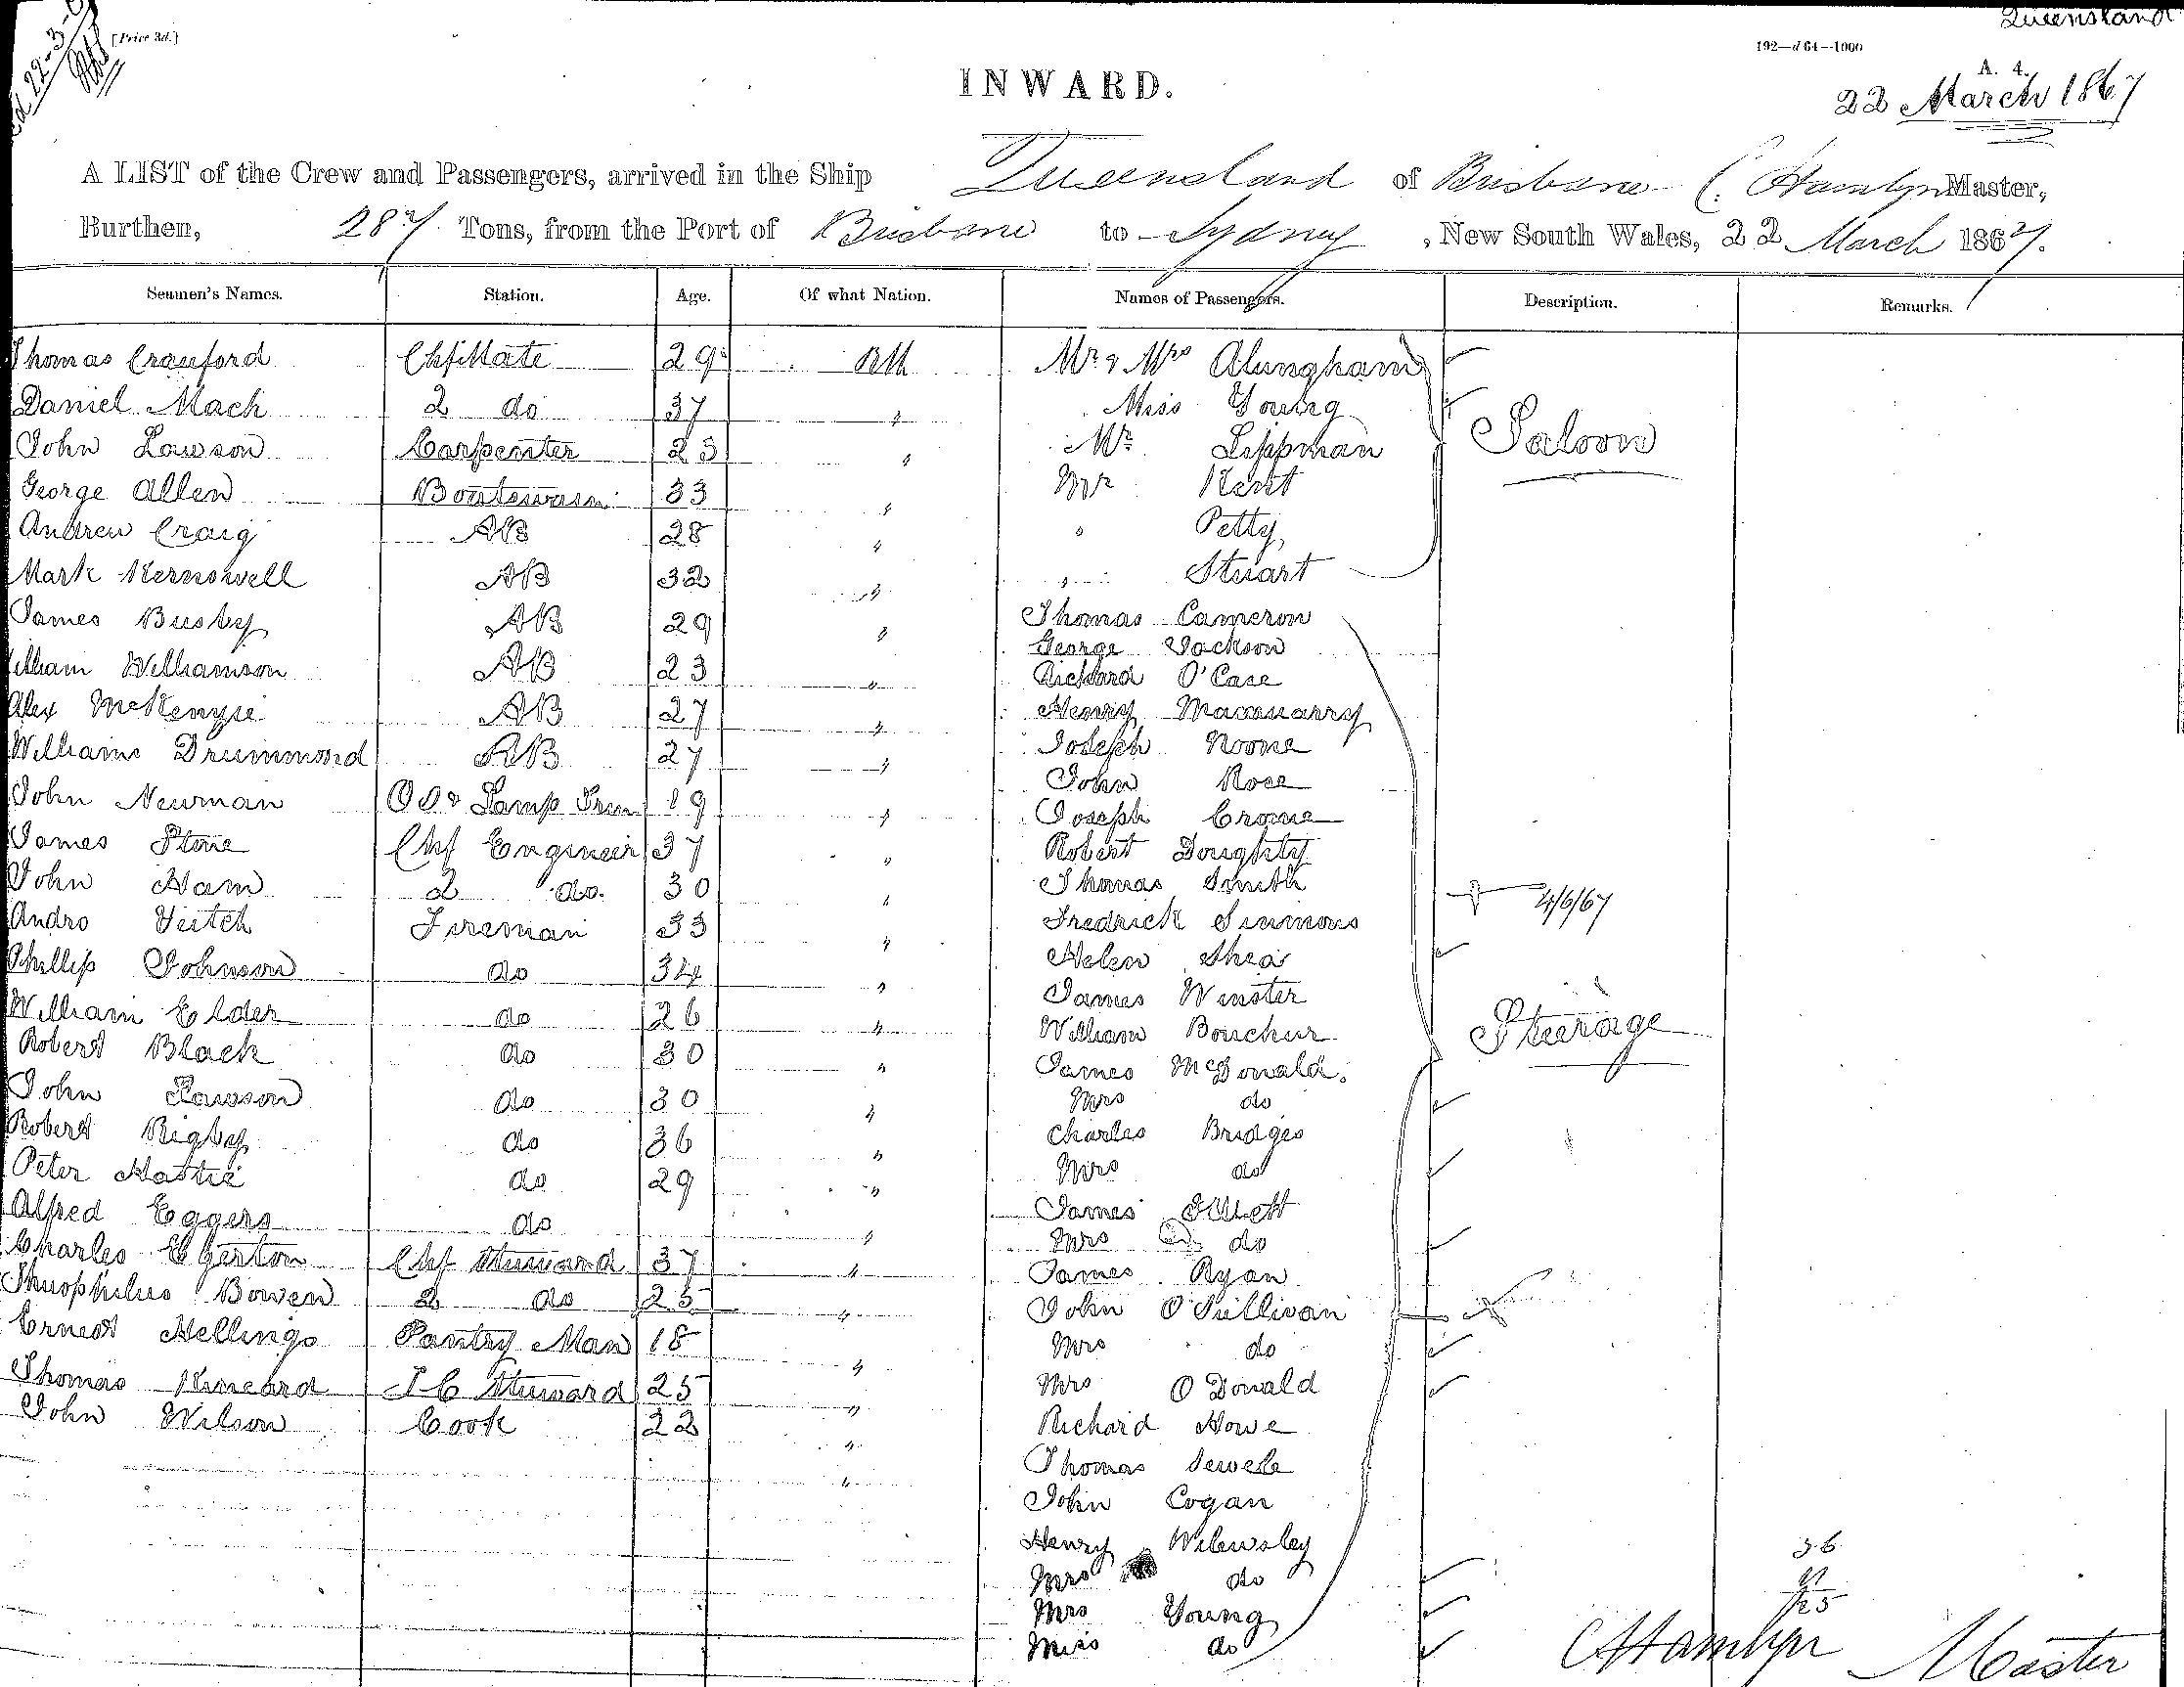 Queensland
[Price 3d.]
192—d 64—1000
A. 4.
INWARD.
22 March 1867
A LIST of the Crew and Passengers, arrived in the Ship Queensland of Brisbane C. Hamlyn Master,
Burthen, 287 Tons, from the Port of Brisbane to Sydney, New South Wales, 22 March 1867.
Seamen's Names. Station. Age. Of what Nation. Names of Passengers. Description. Remarks.
Thomas Crawford Chf Mate 29 Mr & Mrs
Daniel Mach 2 do 37 " Miss Young
John Lawson Carpenter 23 " Mr Lippman Saloon
George Allen Boatswain 33 " Mr Kent
Andrew Craig AB 28 " " Petty
Mark Kernowell AB 32 " " Stuart
James Busby AB 29 " Thomas Cameron
George Jackson
William Williamson AB 23 " Richard O'Case
Alex McKenzie AB 27 " Henry Macquarry
William Drummond AB 27 " Joseph Noone
John Rose
John Newman OS & Lamp Trim 19 " Joseph Crome
James Stone Chf Engineer 37 " Robert Doughty
John Ham 2 do. 30 " Thomas Smith 4/6/67
Andro Veitch Fireman 33 " Fredrick Simmons
Phillip Johnson do 34 " Helen Shea
James Winster
William Elder do 26 " William Bouchur Steerage
Robert Black do 30 " James McDonald.
John Lawson do 30 " Mrs do
Robert Rigby do 36 " Charles Bridges
Peter Hastie do 29 " Mrs do
Alfred Eggers do " James
Mrs do
Charles Egerton Chf Steward 37 " James Ryan
Theophilus Bowen 2 do 25 " John O'Sullivan
Ernest Hellings Pantry Man 18 " Mrs do
Thomas Kincard Steward 25 " Mrs O Donald
John Wilson Cook 22 " Richard Howe
" Thomas Sewele
John Cogan
Henry Wilewsley 36
Mrs do
Mrs Young
Miss do
C Hamlyn Master